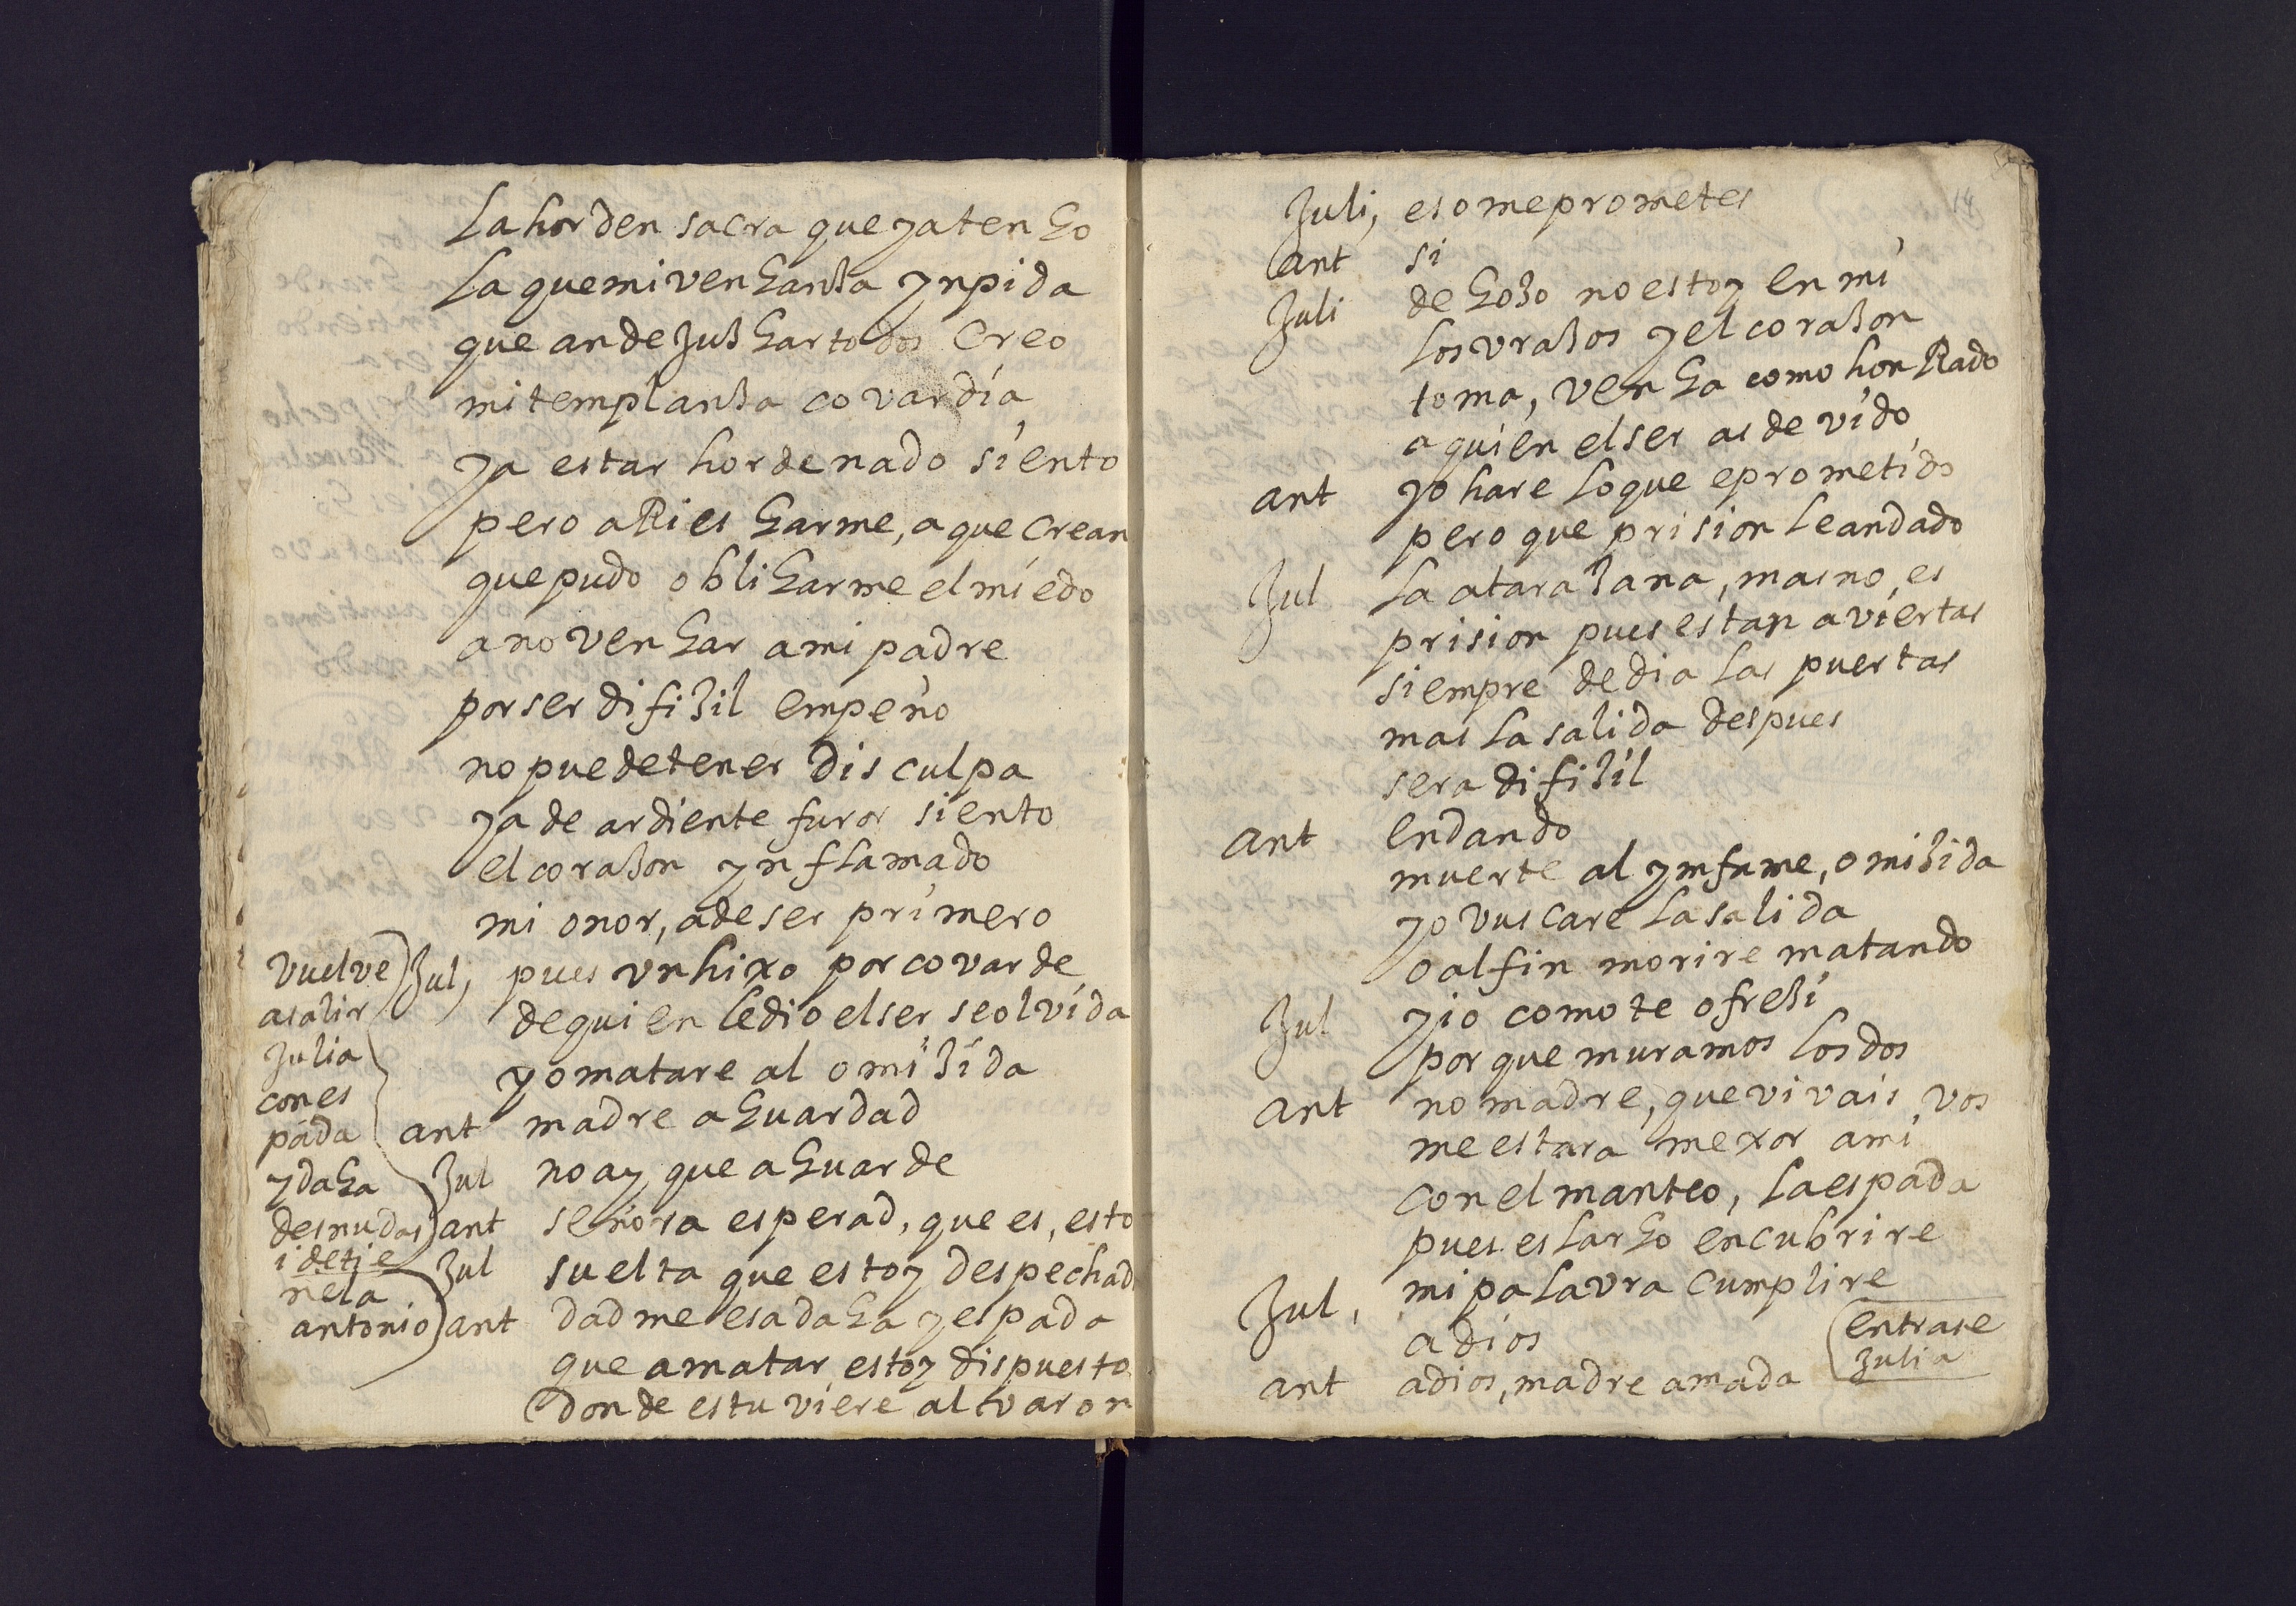 La horden sacra que ya tengo
La que mi venganza ynpida
que an de juzgar todos creo
mi templanza covardía
ya estar hordenado siento
pero a Riesgarme, a que crean
que pudo obligarme el miedo
a no vengar a mi padre
por ser difizil empeño
no puede tener disculpa
ya de ardiente furor siento
el corazon ynflamado
mi onor, a de ser primero
Jul, pues vn hixo por covarde
de quien le dio el ser se olvida
yo matare al omizida
ant madre aguardad
Jul no ay que aguarde
ant señora esperad, que es, esto
Jul suelta que estoy despechad
ant dadme esa daga y espada
que a matar estoy dispuesto
donde estuviere al tvaron
Vuelve
a salir
Julia
con es
pada
y daga
desnudas
i detie
nela
antonio
14
Juli, eso me prometes
ant si
Juli de gozo no estoy en mi
los vrazos y el corazon
toma, venga como honRado
a quien el ser as devido
ant yo hare lo que e prometido
pero que prision le an dado
Jul La atarazana, mas no es
prision pues estan aviertas
siempre de dia las puertas
mas la salida despues
sera difizil
ant en dando
muerte al ynfame, omizida
yo vuscare la salida
o al fin morire matando
Jul y io como te ofrezi
por que muramos los dos
ant no madre, que vivais vos
me estara mexor a mi
con el manteo, la espada
pues es largo encubrire
mi palavra cumplire
Jul, adios
entrase
Julia
ant adios, madre amada